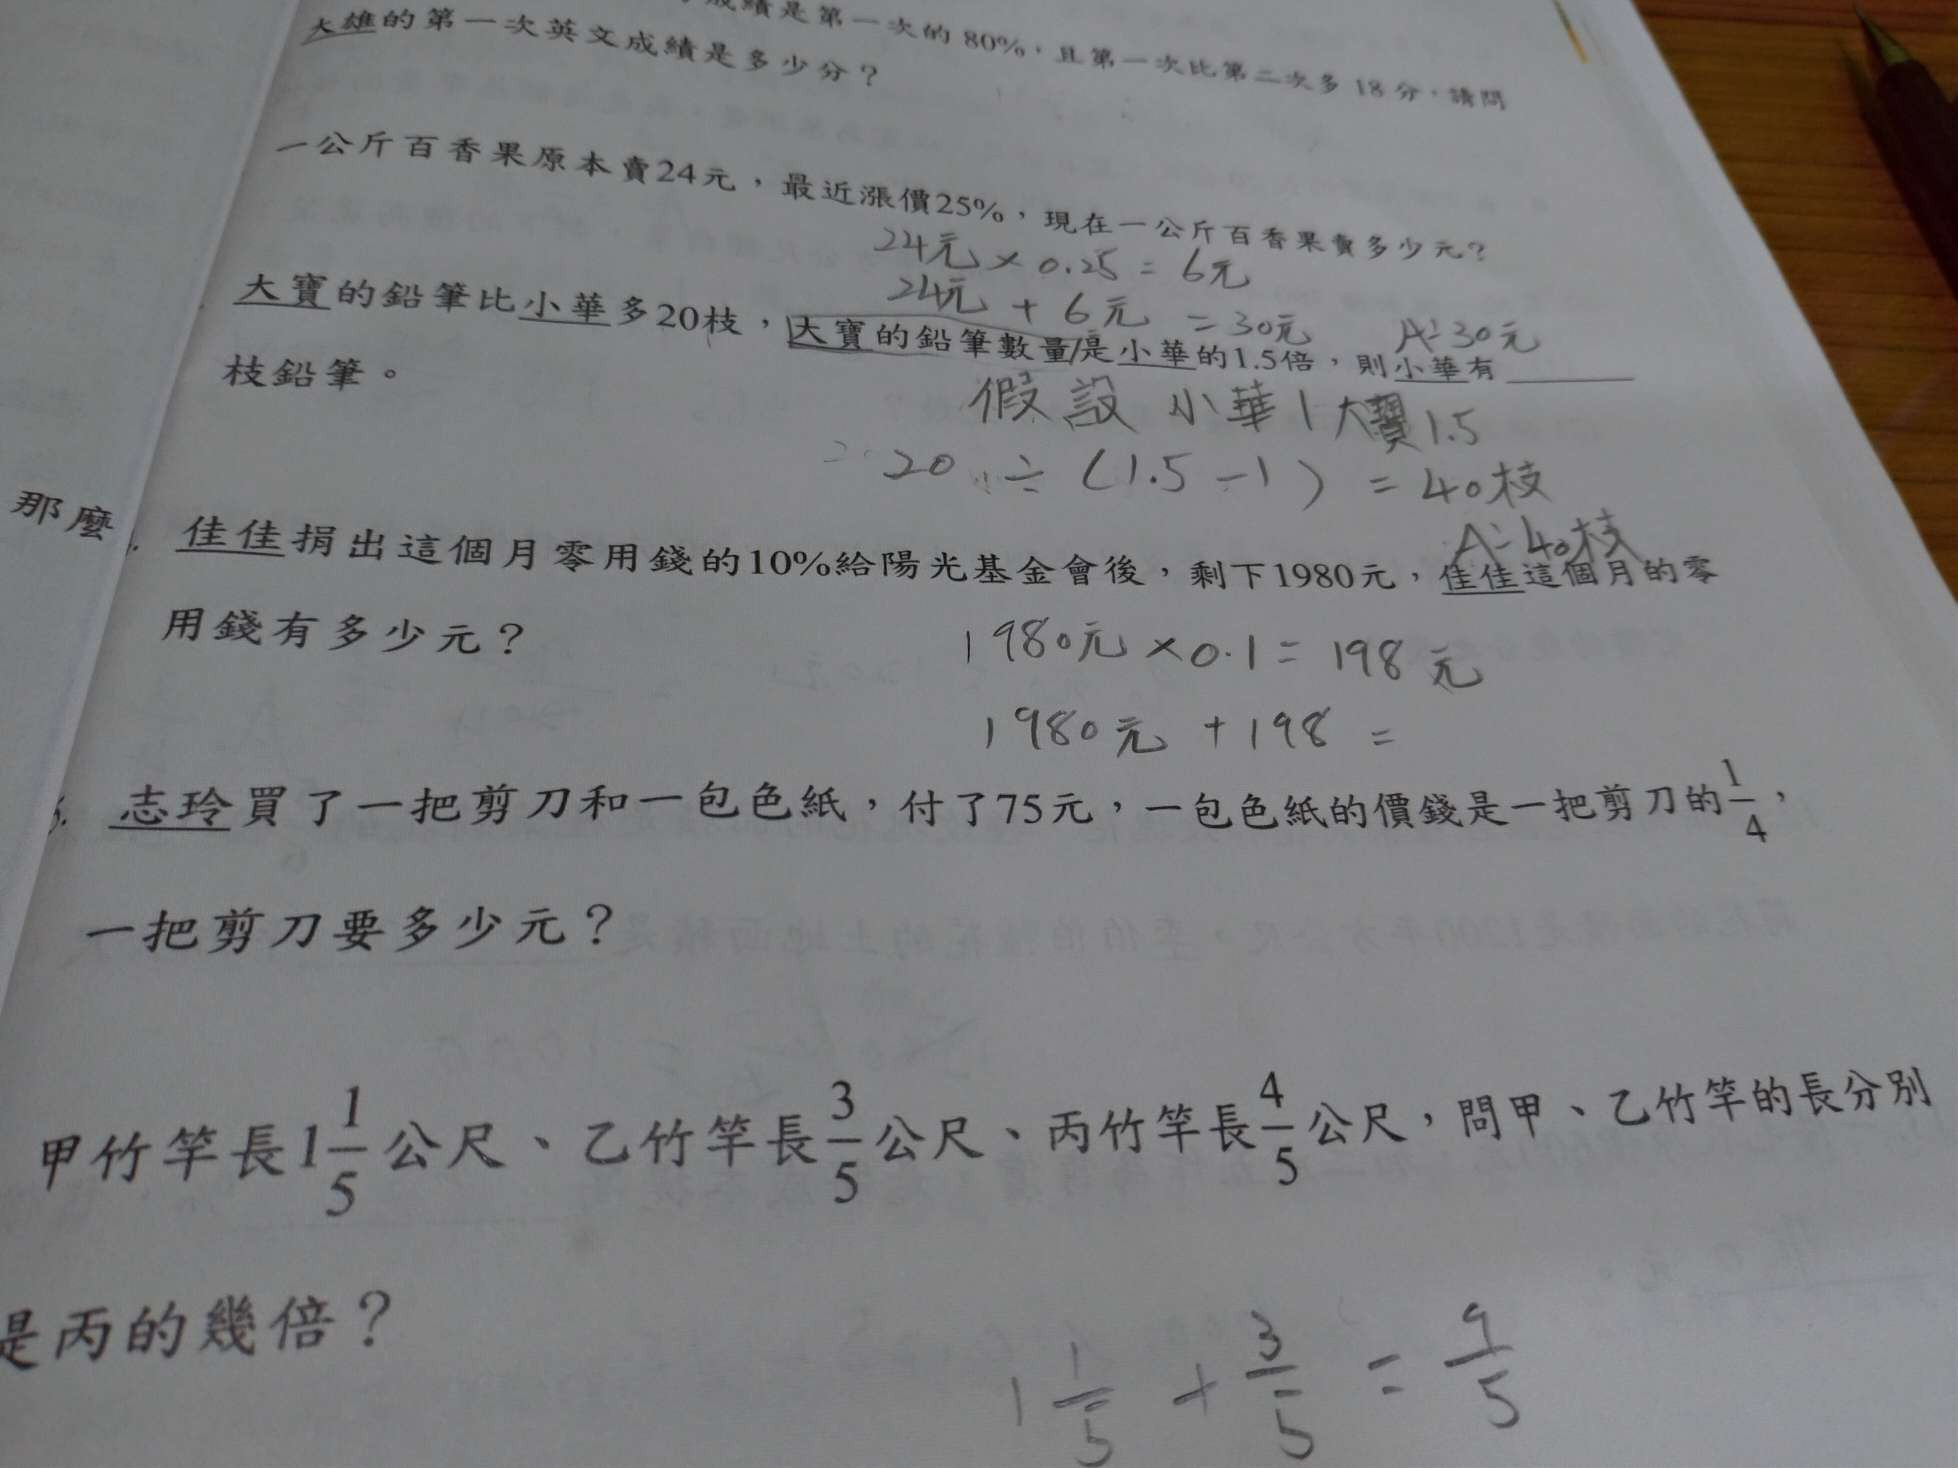 成績是第一次的80%，且第一次比第二次多18分，請問
大雄的第一次英文成績是多少分？
一公斤百香果原本賣24元，最近漲價25%，現在一公斤百香果賣多少元？
24元×0.25=6元
24元+6元=30元 A:30元
大寶的鉛筆比小華多20枝，大寶的鉛筆數量是小華的1.5倍，則小華有
枝鉛筆。
假設 小華1大寶1.5
20÷(1.5-1)=40枝
A:40枝
那麼
佳佳捐出這個月零用錢的10%給陽光基金會後，剩下1980元，佳佳這個月的零
用錢有多少元？
1980元×0.1=198元
1980元+198=
志玲買了一把剪刀和一包色紙，付了75元，一包色紙的價錢是一把剪刀的1/4，
一把剪刀要多少元？
甲竹竿長1 1/5公尺、乙竹竿長3/5公尺、丙竹竿長4/5公尺，問甲、乙竹竿的長分別
是丙的幾倍？
1 1/5+3/5=9/5